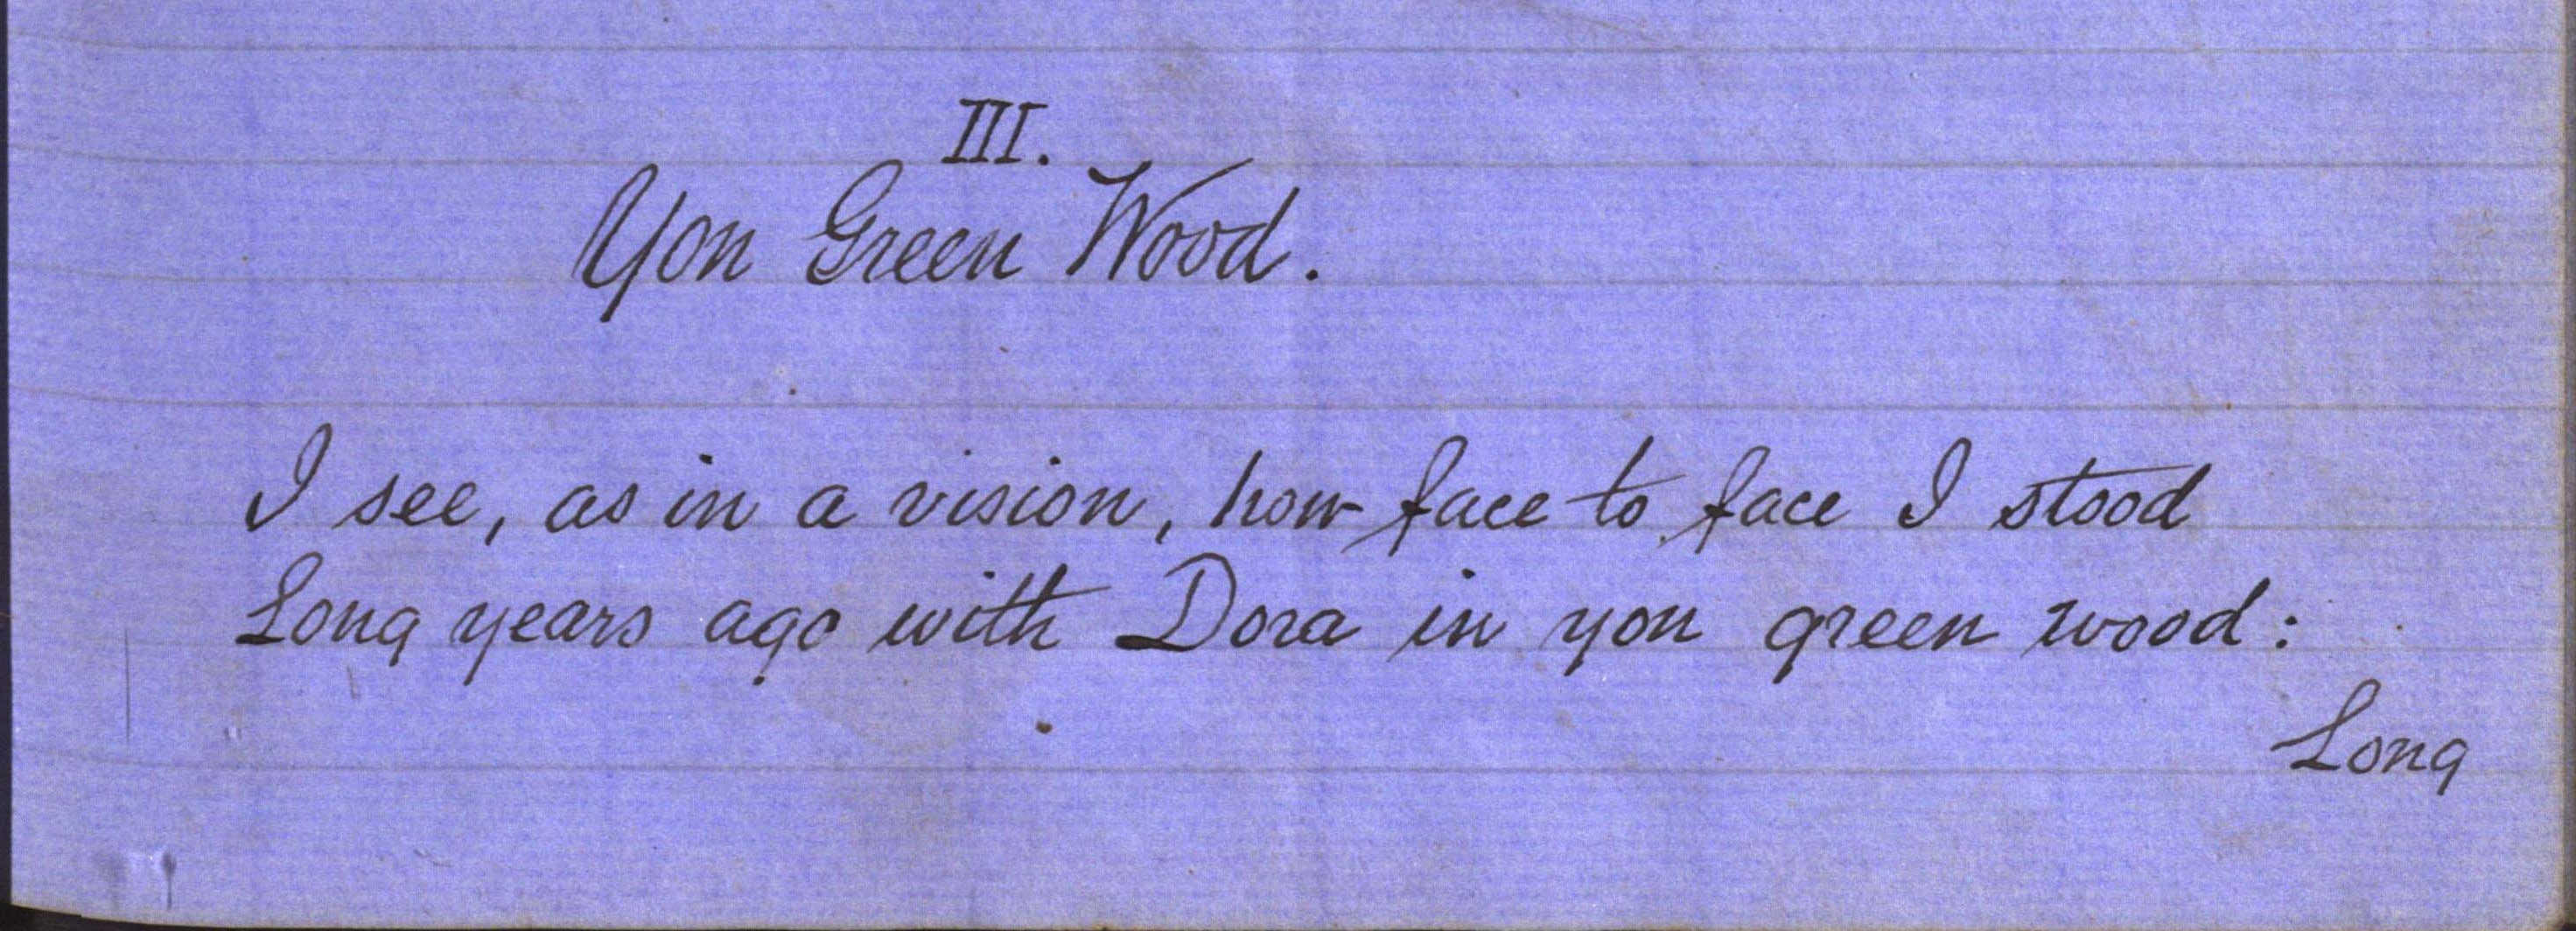 III.
Yon Green Wood.
I see, as in a vision, how face to face I stood
Long years ago with Dora in yon green wood:
Long